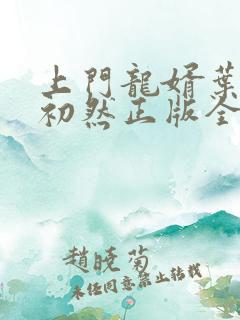 上門龍婿葉
初然正版全
趙曉菊
未任同意禁止转载